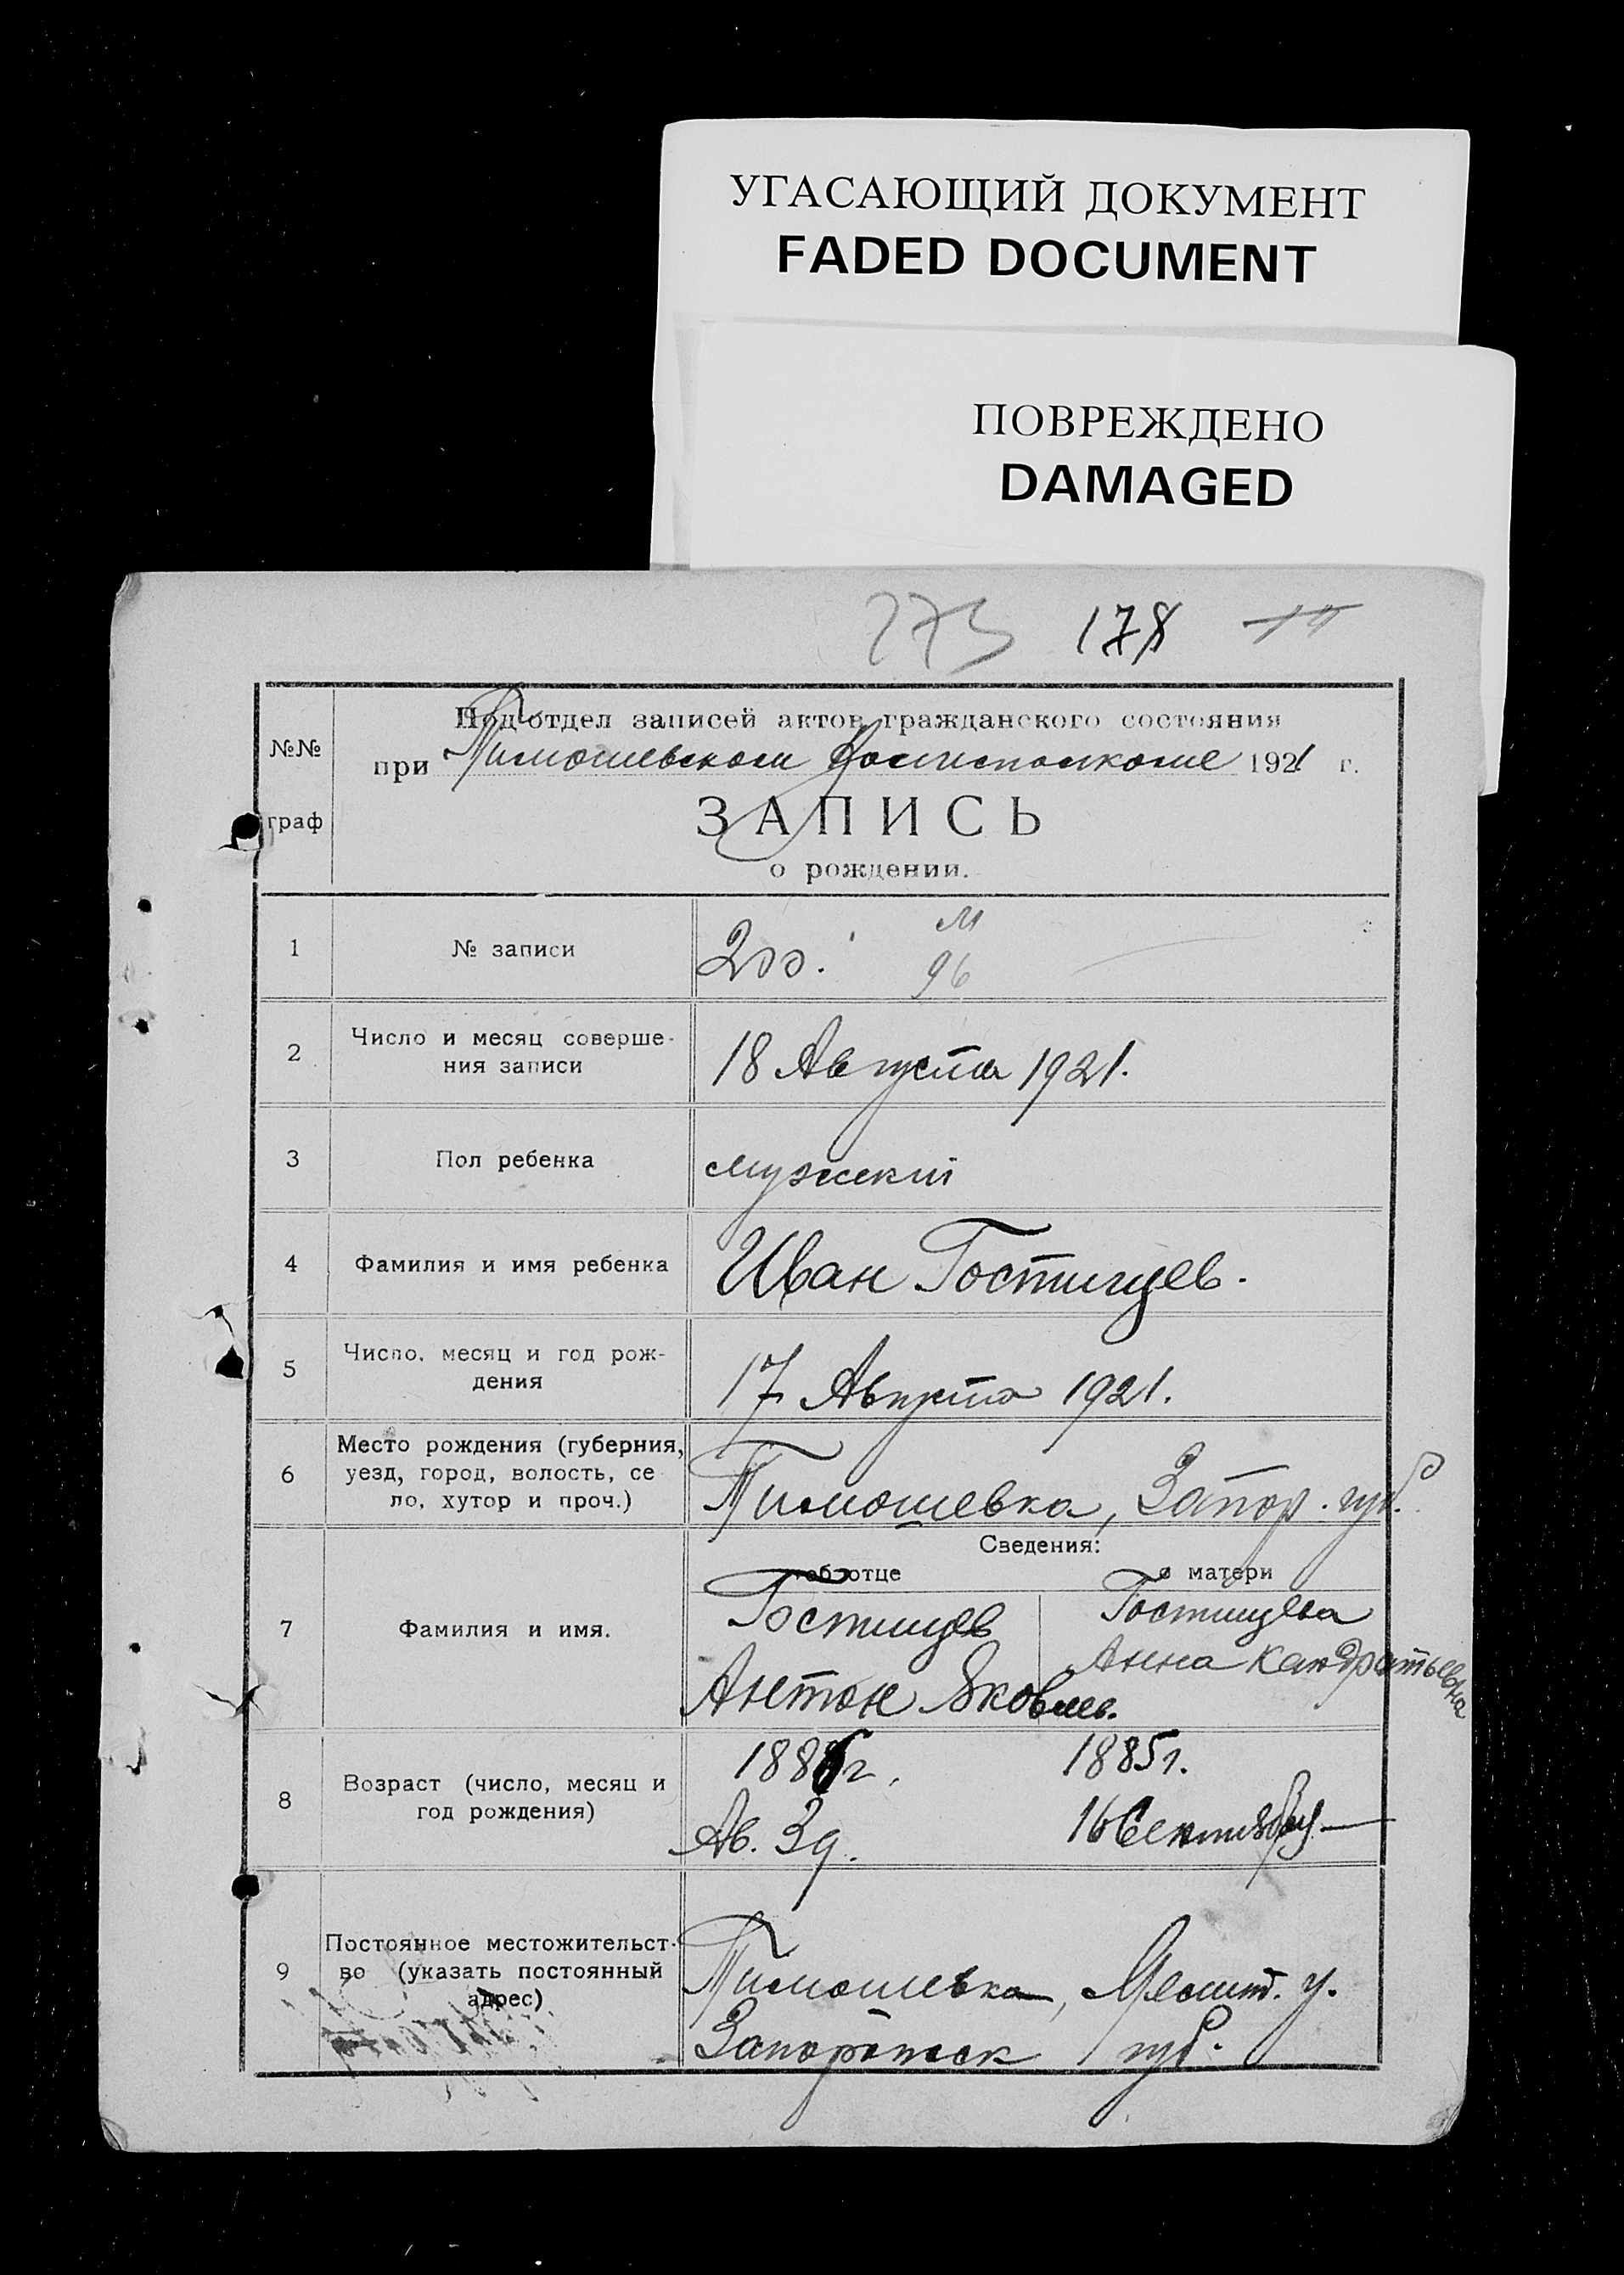 УГАСАЮЩИЙ ДОКУМЕНТ
FADED DOCUMENT
ПОВРЕЖДЕНО
DAMAGED
273 178
№№ граф
Под'отдел записей актов гражданского состояния
при Тимошевском Волисполкоме 1921 г.
ЗАПИСЬ
о рождении.
1 № записи 200. М
96
2 Число и месяц соверше-
ния записи 18 Августа 1921.
3 Пол ребенка мужский
4 Фамилия и имя ребенка Иван Гостищев.
5 Число, месяц и год рож-
дения 17 Августа 1921.
6 Место рождения (губерния,
уезд, город, волость, се
ло, хутор и проч.) Тимошевка, Запор. губ.
Сведения:
об отце о матери
7 Фамилия и имя. Гостищев Гостищева
Антон Яковлев. Анна Кандратьевна
8 Возраст (число, месяц и
год рождения) 1886 г. 1885 г.
Ав. 3 д. 16 Сентября
9 Постоянное местожительст-
во (указать постоянный
адрес) Тимошевка, Мелит. у.
губ.